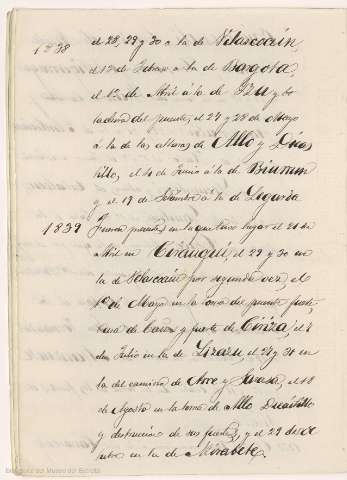 1838 el 28, 29 y 30 a la de Velascoain,
el 1º de Febrero a la de Bargota,
el 1º de Abril á la de y vo
ladura del puente, el 27 y 28 de Mayo
á la de las alturas de Allo y Dicas
tillo, el 4 de Junio á la de Biurrun
y el 19 de Setiembre á la de Legarda
1839 en la que tuvo lugar el 21 de
Abril en Cirauqui, el 29 y 30 en
la de Velascoain por segunda vez, el
1º de Mayo en la toma del puente, forti,
y fuerte de Ciriza, el
de Julio en la de Lizaru, el 24 y 31 en
la del camino de Arre y el 10
de Agosto en la toma de Allo Dicastillo
y destruccion de sus fuertes, y el 29 de Oc
tubre en la de Mirabete.
Biblioteca del Museo del Ejército